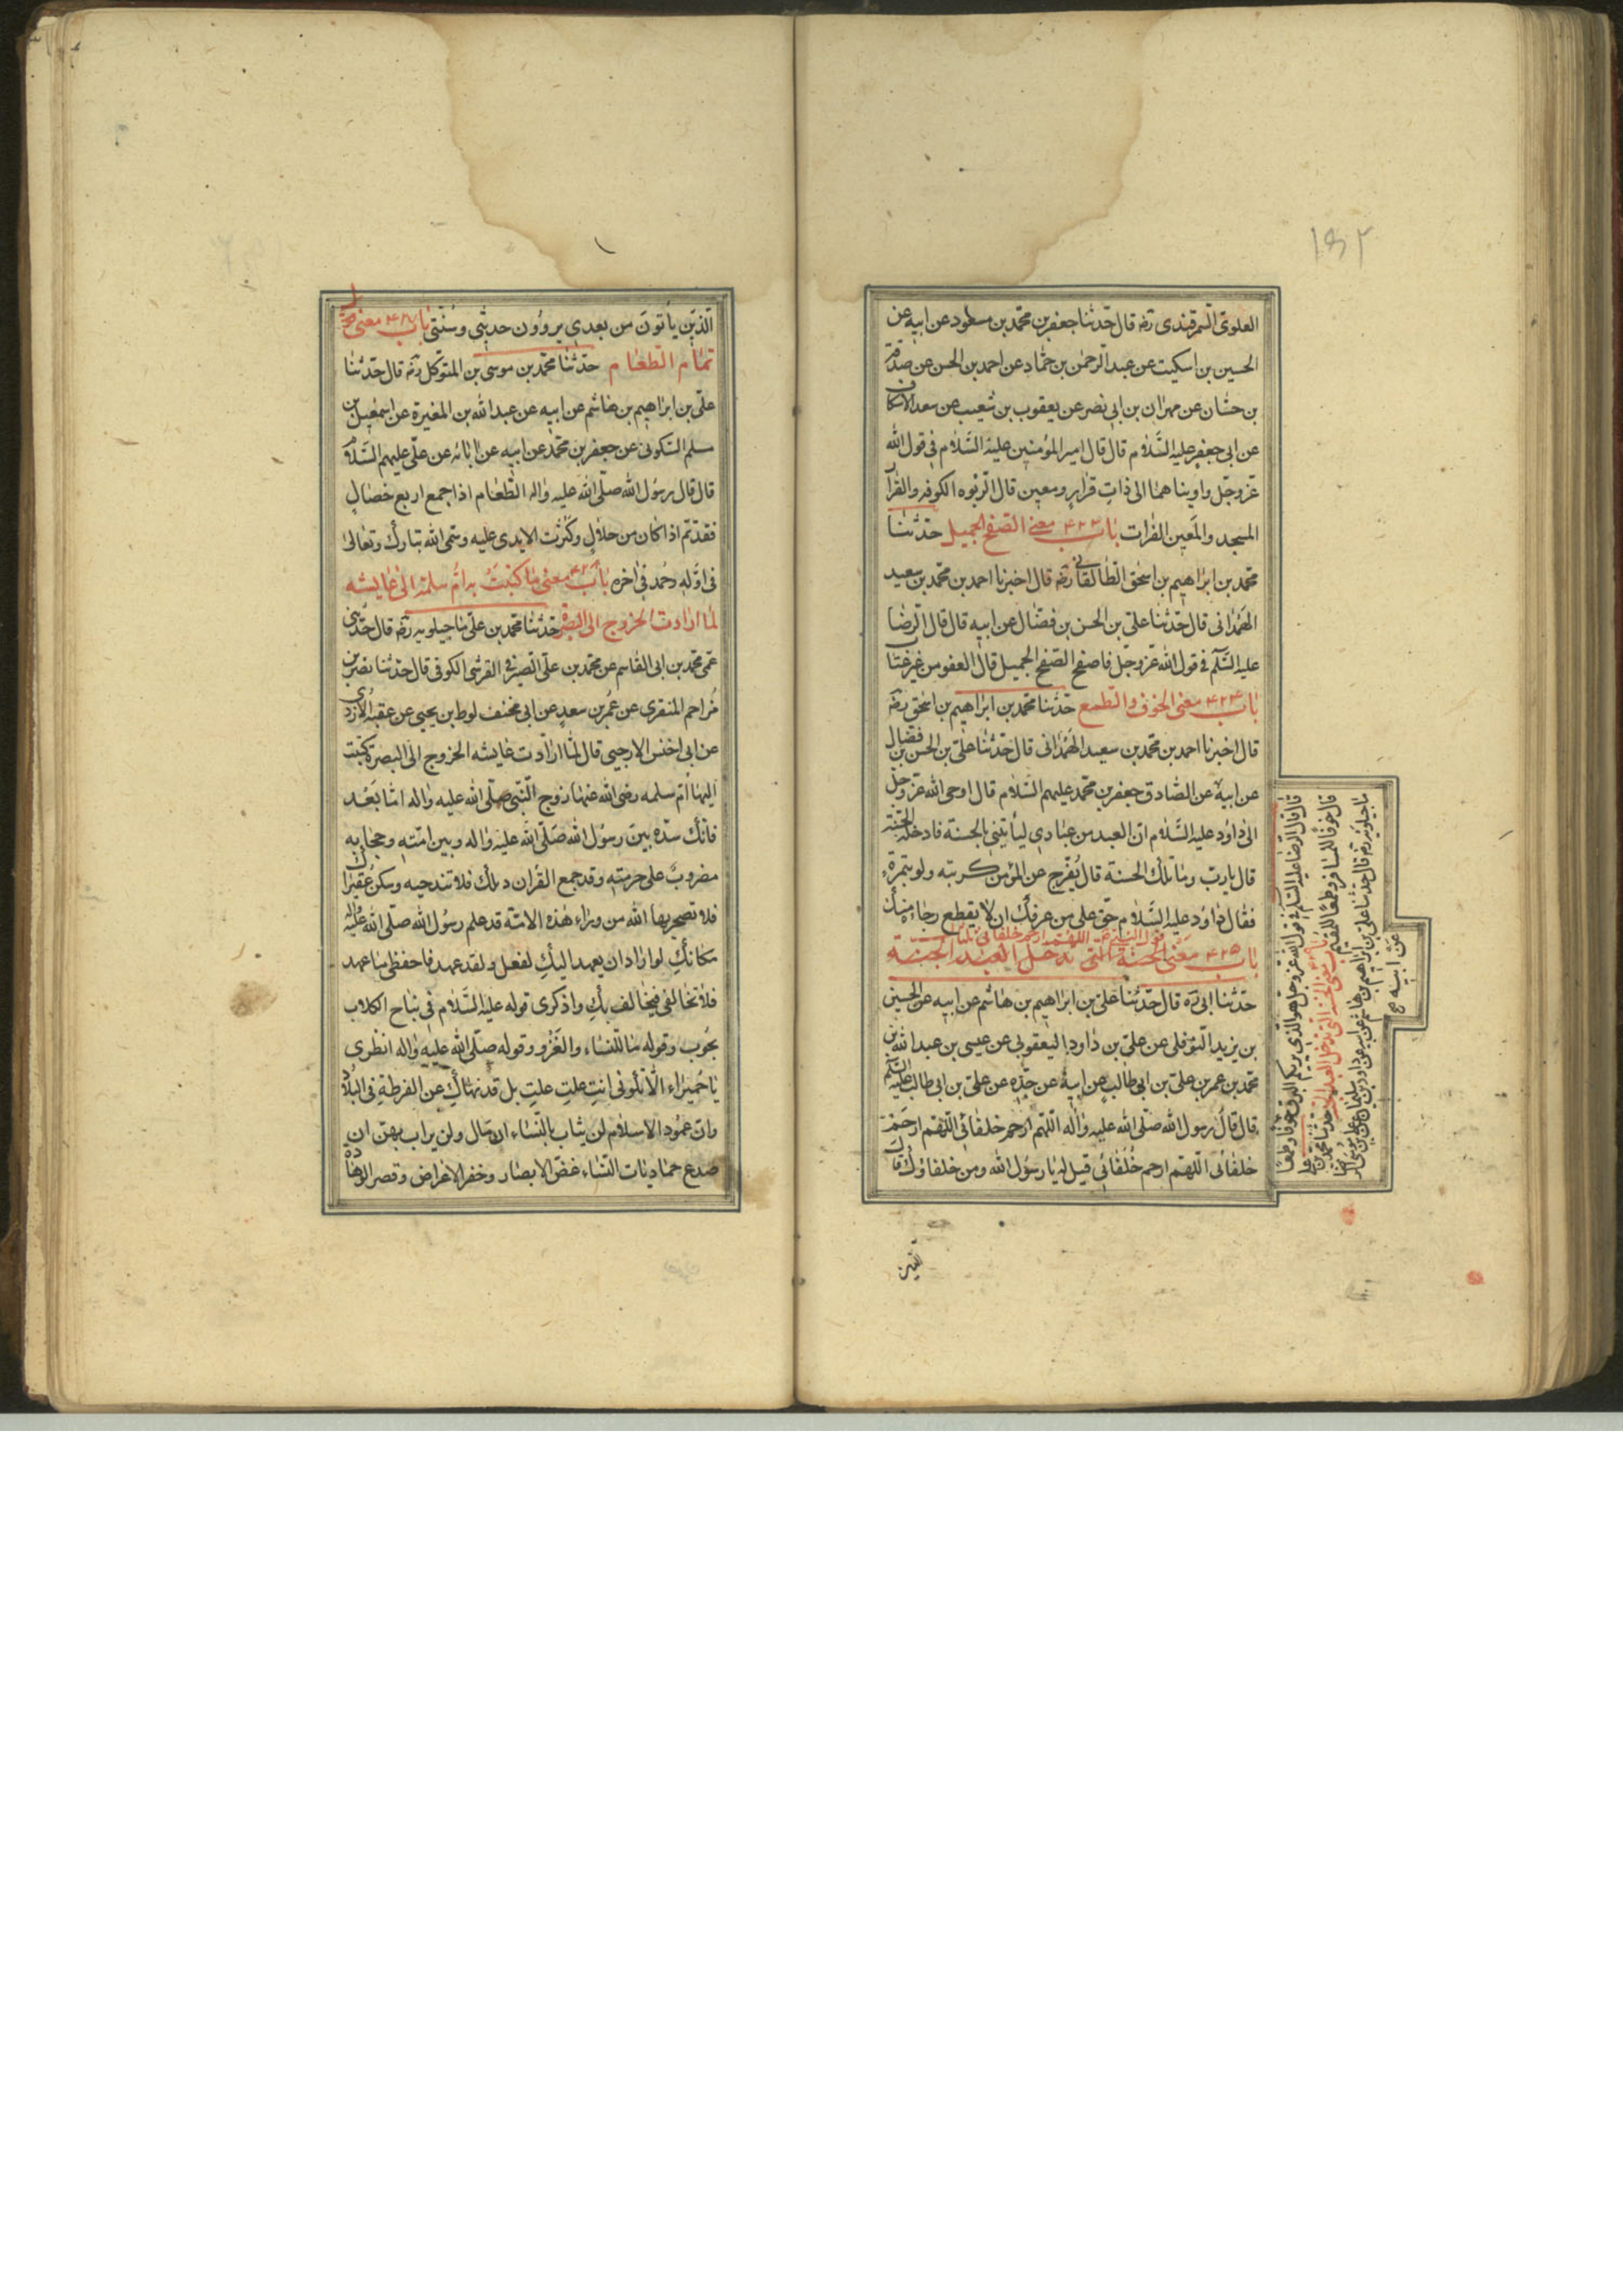 ١٥٢
العلوى السمرقندى ره قال حدثنا جعفر بن محمد بن مسعود عن ابيه عن
الحسين بن اسكيت عن عبد الرحمن بن حماد عن احمد بن الحسن عن صدقة
بن حسان عن مهران بن ابى نصر عن يعقوب بن شعيب عن سعد الاسكاف
عن ابى جعفر عليه السلام قال قال امير المؤمنين عليه السلام فى قول الله
عز وجل واويناهما الى ذات قرار ومعين قال الربوه الكوفه والقرار
المسجد والمعين الفرات باب ٤٢٣ معنى الصفح الجميل حدثنا
محمد بن ابراهيم بن اسحق الطالقانى ره قال اخبرنا احمد بن محمد بن سعيد
الهمدانى قال حدثنا على بن الحسن بن فضال عن ابيه قال قال الرضا
عليه السلم فى قول الله عز وجل فاصفح الصفح الجميل قال العفو من غير عتا
باب ٤٢٤ معنى الخوف والطمع حدثنا محمد بن ابراهيم بن اسحق ره
قال اخبرنا احمد بن محمد بن سعيد الهمدانى قال حدثنا على بن الحسن بن فضال
عن ابيه عن الصادق جعفر بن محمد عليهم السلام قال اوحى الله عز وجل
الى داود عليه السلام ان العبد من عبادى ليأتينى بالحسنة فادخله الجنة
قال يارب وما تلك الحسنة قال يفرج عن المؤمن كربته ولو بتمرة
فقال داود عليه السلام حق على من عرفك ان لا يقطع رجاءه منك
قول النبى ص اللهم ارحم خلفائى ثلثا
باب ٤٢٥ معنى الحسنة التى تدخل العبد الجنة
حدثنا ابى ره قال حدثنا على بن ابراهيم بن هاشم عن ابيه عن الحسين
بن يزيد النوفلى عن على بن داود اليعقوبى عن عيسى بن عبد الله بن
محمد بن عمر بن على بن ابى طالب عن ابيه عن جده عن على بن ابى طالب عليه السلم
قال قال رسول الله صلى الله عليه واله اللهم ارحم خلفائى اللهم ارحم
خلفائى اللهم ارحم خلفائى قيل له يا رسول الله ومن خلفاؤك قال
الذين
قال قال الرضا عليه السلم فى قول الله عز وجل هو الذى يريكم البرق خوفا وطمعا
قال خوفا للمسافر وطمعا للمقيم باب معنى الحسنة التى تدخل العبد الجنة حدثنا محمد بن على
ماجيلويه ره قال حدثنا على بن ابراهيم بن هاشم عن ابيه عن داود بن سليمان عن على بن موسى الرضا
عن ابيه
الذين يأتون من بعدى يروون حديثى وسنتى باب معنى
تمام الطعام حدثنا محمد بن موسى بن المتوكل ره قال حدثنا
على بن ابراهيم بن هاشم عن ابيه عن عبد الله بن المغيرة عن اسمعيل بن
مسلم السكونى عن جعفر بن محمد عن ابيه عن ابائه عن على عليهم السلام
قال قال رسول الله صلى الله عليه واله الطعام اذا جمع اربع خصال
فقد تم اذا كان من حلال وكثرت الايدى عليه وسمى الله تبارك وتعالى
فى اوله وحمد فى اخره باب معنى ما كتبت به ام سلمة الى عايشه
لما ارادت الخروج الى البصرة حدثنا محمد بن على ماجيلويه ره قال حدثنى
عمى محمد بن ابى القاسم عن محمد بن على الصيرفى القرشى الكوفى قال حدثنا نصر بن
مزاحم المنقرى عن عمر بن سعد عن ابى مخنف لوط بن يحيى عن عقبه الازدى
عن ابى اخنس الارحبى قال لما ارادت عايشه الخروج الى البصرة كتبت
اليها ام سلمه رضى الله عنها زوج النبى صلى الله عليه واله اما بعد
فانك سده بين رسول الله صلى الله عليه واله وبين امته وحجابه
مضروب على حرمته وقد جمع القران ذيلك فلا تندحيه وسكن عقيراك
فلا تصحريها الله من وراء هذه الامة قد علم رسول الله صلى الله عليه واله
مكانك لو اراد ان يعهد اليك لفعل ولقد عهد فاحفظى ما عهد
فلا تخالفى فيخالف بك واذكرى قوله عليه السلام فى نباح الكلاب
بحوب وقوله ما للنساء والغزو وقوله صلى الله عليه واله انظرى
يا حميراء الا تكونى انت علت علت بل قد نهاك عن الفرطة فى البلاد
وان عمود الاسلام لن يثاب بالنساء ان مال ولن يراب بهن ان
صدع حماديات النساء غض الابصار وخفر الاعراض وقصر الوهادة